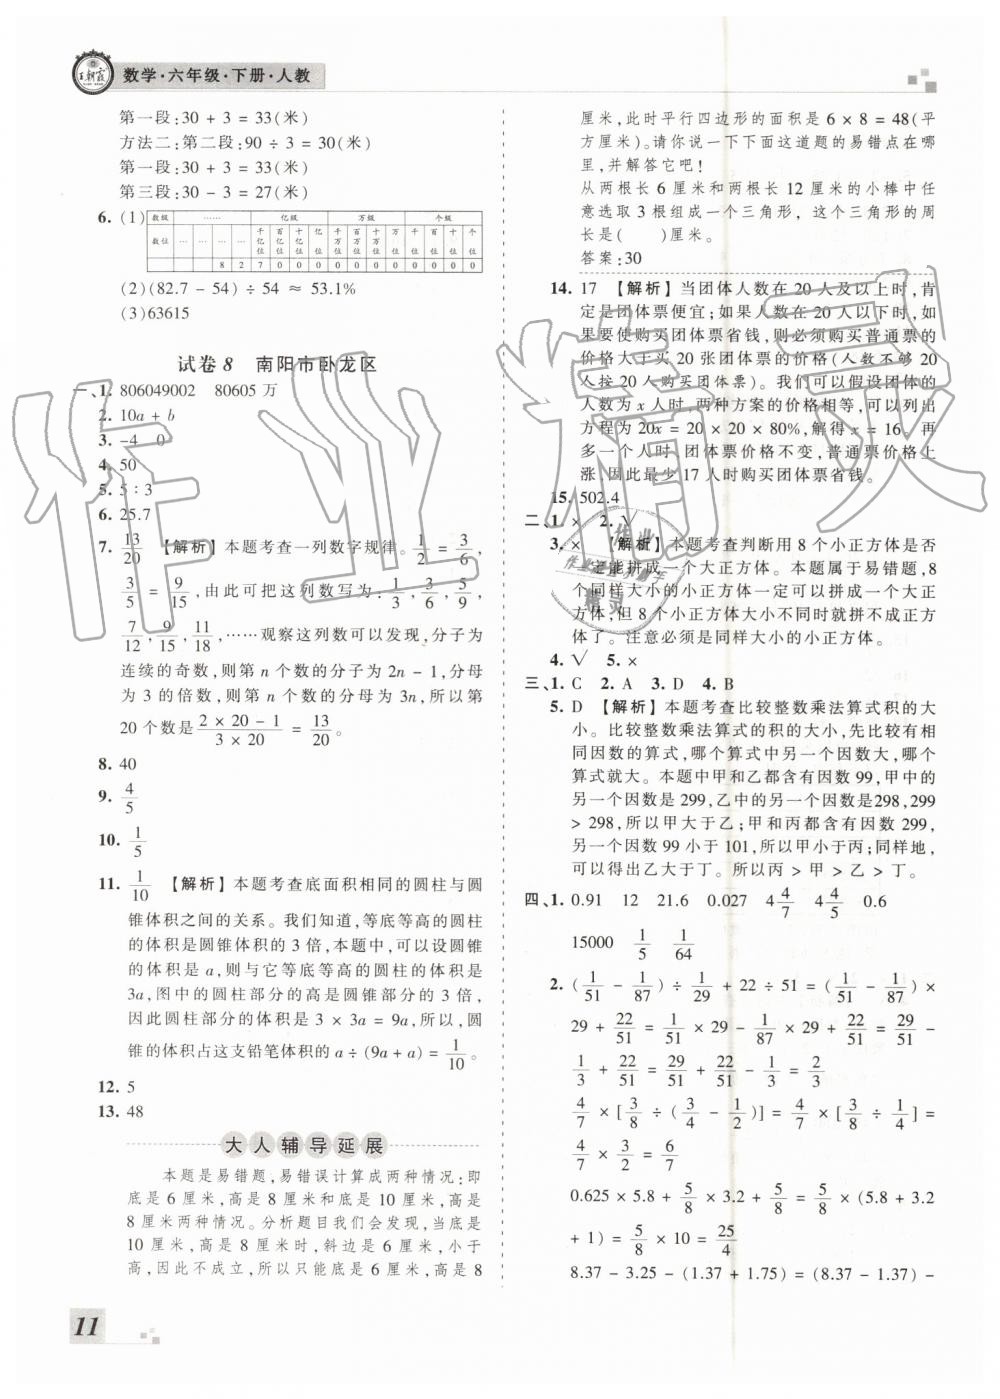 王朝霞
数学·六年级·下册·人教
第一段:30 + 3 = 33(米)
方法二:第二段:90 ÷ 3 = 30(米)
第一段:30 + 3 = 33(米)
第三段:30 - 3 = 27(米)
6. (1)
数级 …… 亿级 万级 个级
数位 … … … … 千亿位 百亿位 十亿位 亿位 千万位 百万位 十万位 万位 千位 百位 十位 个位
8 2 7 0 0 0 0 0 0 0 0 0 0 0
(2)(82.7 - 54) ÷ 54 ≈ 53.1%
(3)63615
试卷8 南阳市卧龙区
一、1. 806049002 80605万
2. 10a + b
3. -4 0
4. 50
5. 5:3
6. 25.7
7. 13/20 【解析】本题考查一列数字规律。1/2 = 3/6,
3/5 = 9/15,由此可把这列数写为:1/3,3/6,5/9,
7/12,9/15,11/18,……观察这列数可以发现,分子为
连续的奇数,则第 n 个数的分子为 2n - 1,分母
为 3 的倍数,则第 n 个数的分母为 3n,所以第
20 个数是 (2 × 20 - 1)/(3 × 20) = 13/20。
8. 40
9. 4/5
10. 1/5
11. 1/10 【解析】本题考查底面积相同的圆柱与圆
锥体积之间的关系。我们知道,等底等高的圆柱
的体积是圆锥体积的 3 倍,本题中,可以设圆锥
的体积是 a,则与它等底等高的圆柱的体积是
3a,图中的圆柱部分的高是圆锥部分的 3 倍,
因此圆柱部分的体积是 3 × 3a = 9a,所以,圆
锥的体积占这支铅笔体积的 a ÷ (9a + a) = 1/10。
12. 5
13. 48
大人辅导延展
本题是易错题,易错误计算成两种情况:即
底是 6 厘米,高是 8 厘米和底是 10 厘米,高是
8 厘米两种情况。分析题目我们会发现,当底是
10 厘米,高是 8 厘米时,斜边是 6 厘米,小于
高,因此不成立,所以只能底是 6 厘米,高是 8
厘米,此时平行四边形的面积是 6 × 8 = 48(平
方厘米)。请你说一下下面这道题的易错点在哪
里,并解答它吧!
从两根长 6 厘米和两根长 12 厘米的小棒中任
意选取 3 根组成一个三角形,这个三角形的周
长是( )厘米。
答案:30
14. 17 【解析】当团体人数在 20 人及以上时,肯
定是团体票便宜;如果人数在 20 人以下时,如
果要使购买团体票省钱,则必须购买普通票的
价格大于买 20 张团体票的价格(人数不够 20
人按 20 人购买团体票)。我们可以假设团体的
人数为 x 人时,两种方案的价格相等,可以列出
方程为 20x = 20 × 20 × 80%,解得 x = 16。再
多一个人时,团体票价格不变,普通票价格上
涨,因此最少 17 人时购买团体票省钱。
15. 502.4
二、1. × 2. √
3. × 【解析】本题考查判断用 8 个小正方体是否
一定能拼成一个大正方体。本题属于易错题,8
个同样大小的小正方体一定可以拼成一个大正
方体,但 8 个小正方体大小不同时就拼不成正方
体了。注意必须是同样大小的小正方体。
4. √ 5. ×
三、1. C 2. A 3. D 4. B
5. D 【解析】本题考查比较整数乘法算式积的大
小。比较整数乘法算式的积的大小,先比较有相
同因数的算式,哪个算式中另一个因数大,哪个
算式就大。本题中甲和乙都含有因数 99,甲中的
另一个因数是 299,乙中的另一个因数是298,299
> 298,所以甲大于乙;甲和丙都含有因数 299,
另一个因数 99 小于 101,所以甲小于丙;同样地,
可以得出乙大于丁。所以丙 > 甲 > 乙 > 丁。
四、1. 0.91 12 21.6 0.027 4 4/7 4 4/5 0.6
15000 1/5 1/64
2. (1/51 - 1/87) ÷ 1/29 + 22 ÷ 51 = (1/51 - 1/87) ×
29 + 22/51 = 1/51 × 29 - 1/87 × 29 + 22/51 = 29/51 -
1/3 + 22/51 = 29/51 + 22/51 - 1/3 = 2/3
4/7 × [3/8 ÷ (3/4 - 1/2)] = 4/7 × [3/8 ÷ 1/4] =
4/7 × 3/2 = 6/7
0.625 × 5.8 + 5/8 × 3.2 + 5/8 = 5/8 × (5.8 + 3.2
+ 1) = 5/8 × 10 = 25/4
8.37 - 3.25 - (1.37 + 1.75) = (8.37 - 1.37) -
11
作业精灵